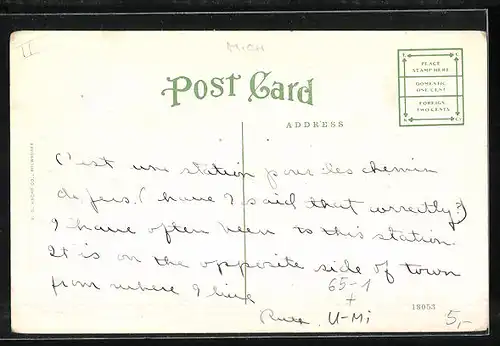 II
MICH
POST CARD
ADDRESS
PLACE
STAMP HERE
DOMESTIC
ONE CENT
FOREIGN
TWO CENTS
C'est une station pour les chemin
de fers. (have I said that correctly?)
I have often been to this station.
It is on the opposite side of town
from where I live
65-1
+
U-Mi
18053
5,-